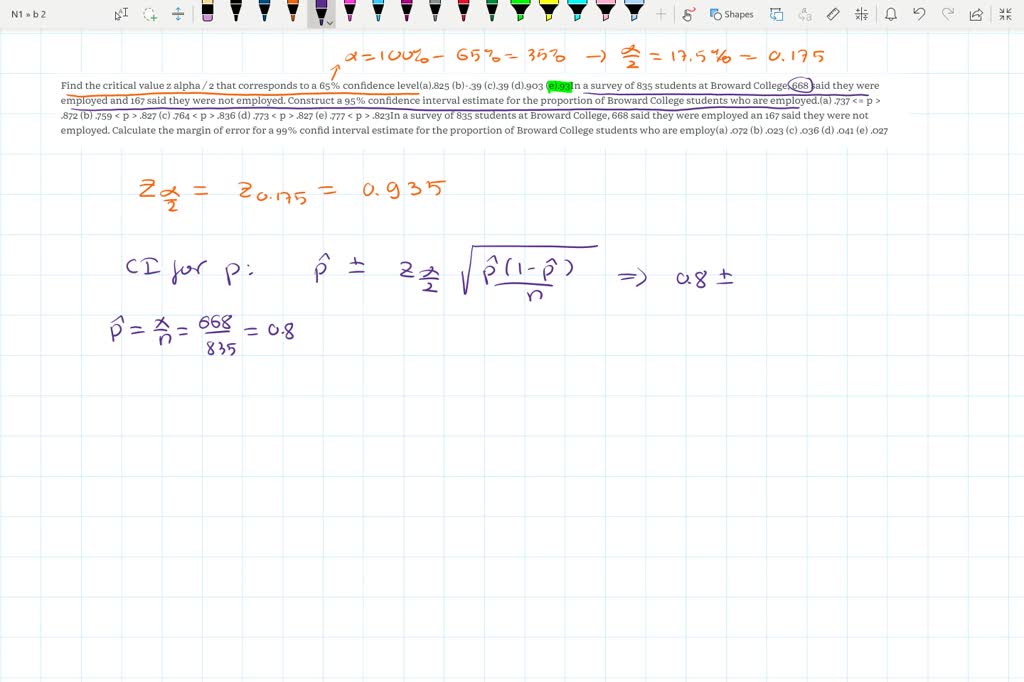 N1 » b 2
Shapes
α = 100% - 65% = 35% → α/2 = 17.5% = 0.175
Find the critical value z alpha / 2 that corresponds to a 65% confidence level(a).825 (b)-.39 (c).39 (d).903 (e).93In a survey of 835 students at Broward College, 668 said they were
employed and 167 said they were not employed. Construct a 95% confidence interval estimate for the proportion of Broward College students who are employed.(a) .737 <= p >
.872 (b) .759 < p > .827 (c) .764 < p > .836 (d) .773 < p > .827 (e) .777 < p > .823In a survey of 835 students at Broward College, 668 said they were employed an 167 said they were not
employed. Calculate the margin of error for a 99% confid interval estimate for the proportion of Broward College students who are employ(a) .072 (b) .023 (c) .036 (d) .041 (e) .027
z α/2 = z 0.175 = 0.935
CI for p: p̂ ± z α/2 √(p̂(1-p̂)/n) ⇒ 0.8 ±
p̂ = x/n = 668/835 = 0.8